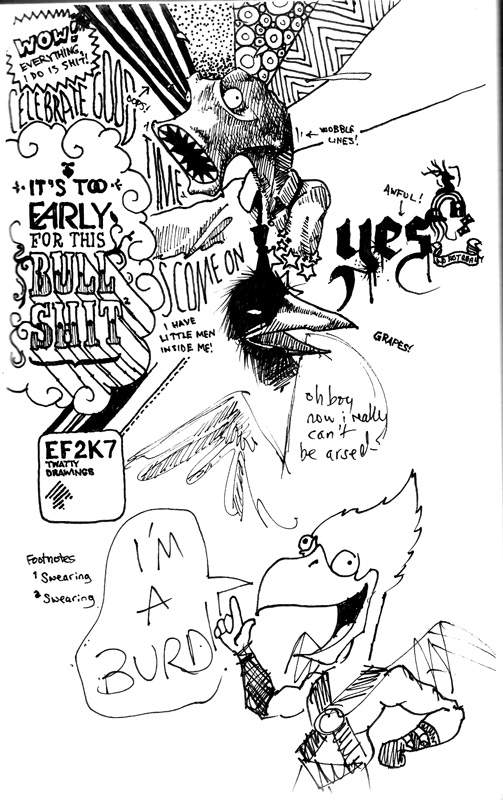 WOW!
EVERYTHING
I DO IS SHIT!
CELEBRATE GOOD
OOPS!
TIMES
COME ON
WOBBLE
LINES!
AWFUL!
yes
IT'S TOO
EARLY
FOR THIS
BULL
SHIT
1
2
I HAVE
LITTLE MEN
INSIDE ME!
GRAPES!
oh boy
now i really
can't
be arsed
EF2K7
TWATTY
DRAWINGS
Footnotes
1 Swearing
2 Swearing
I'M
A
BURD!